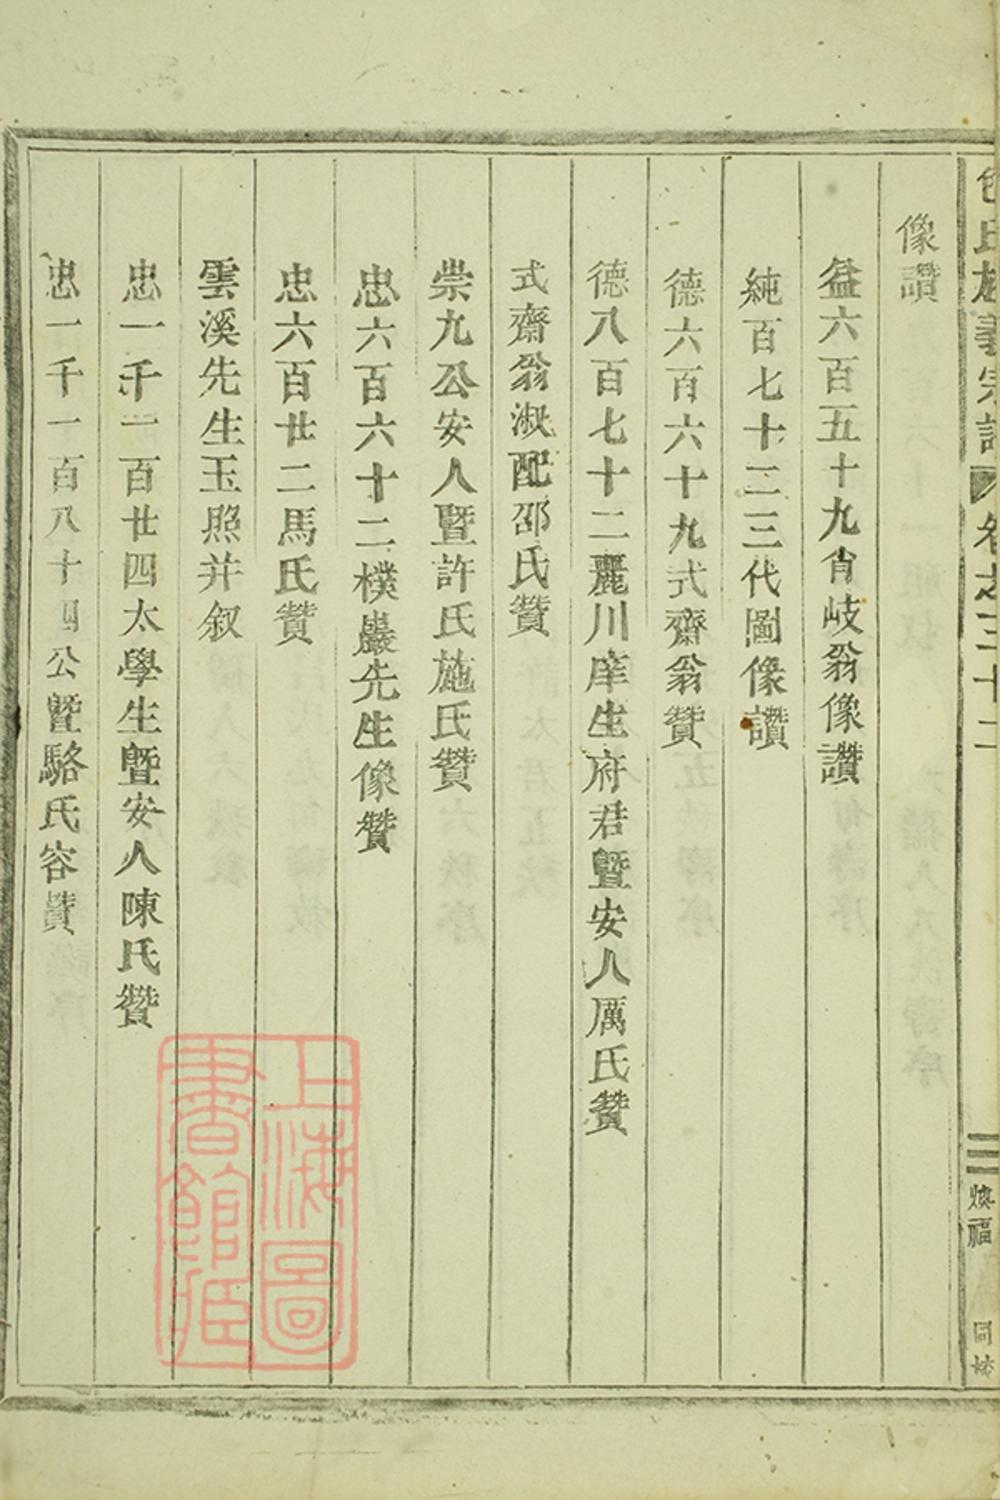 氏族義宗譜 卷之三十二 三 煥福 同校
像讚
益六百五十九肖岐翁像讚
純百七十二三代圖像讚
德六百六十九式齋翁贊
德八百七十二麗川庠生府君暨安人厲氏贊
式齋翁淑配邵氏贊
崇九公安人暨許氏施氏贊
忠六百六十二樸巖先生像贊
忠六百廿二馬氏贊
雲溪先生玉照并叙
忠一千一百廿四太學生暨安人陳氏贊
忠一千一百八十四公暨駱氏容贊
上海圖
書館藏